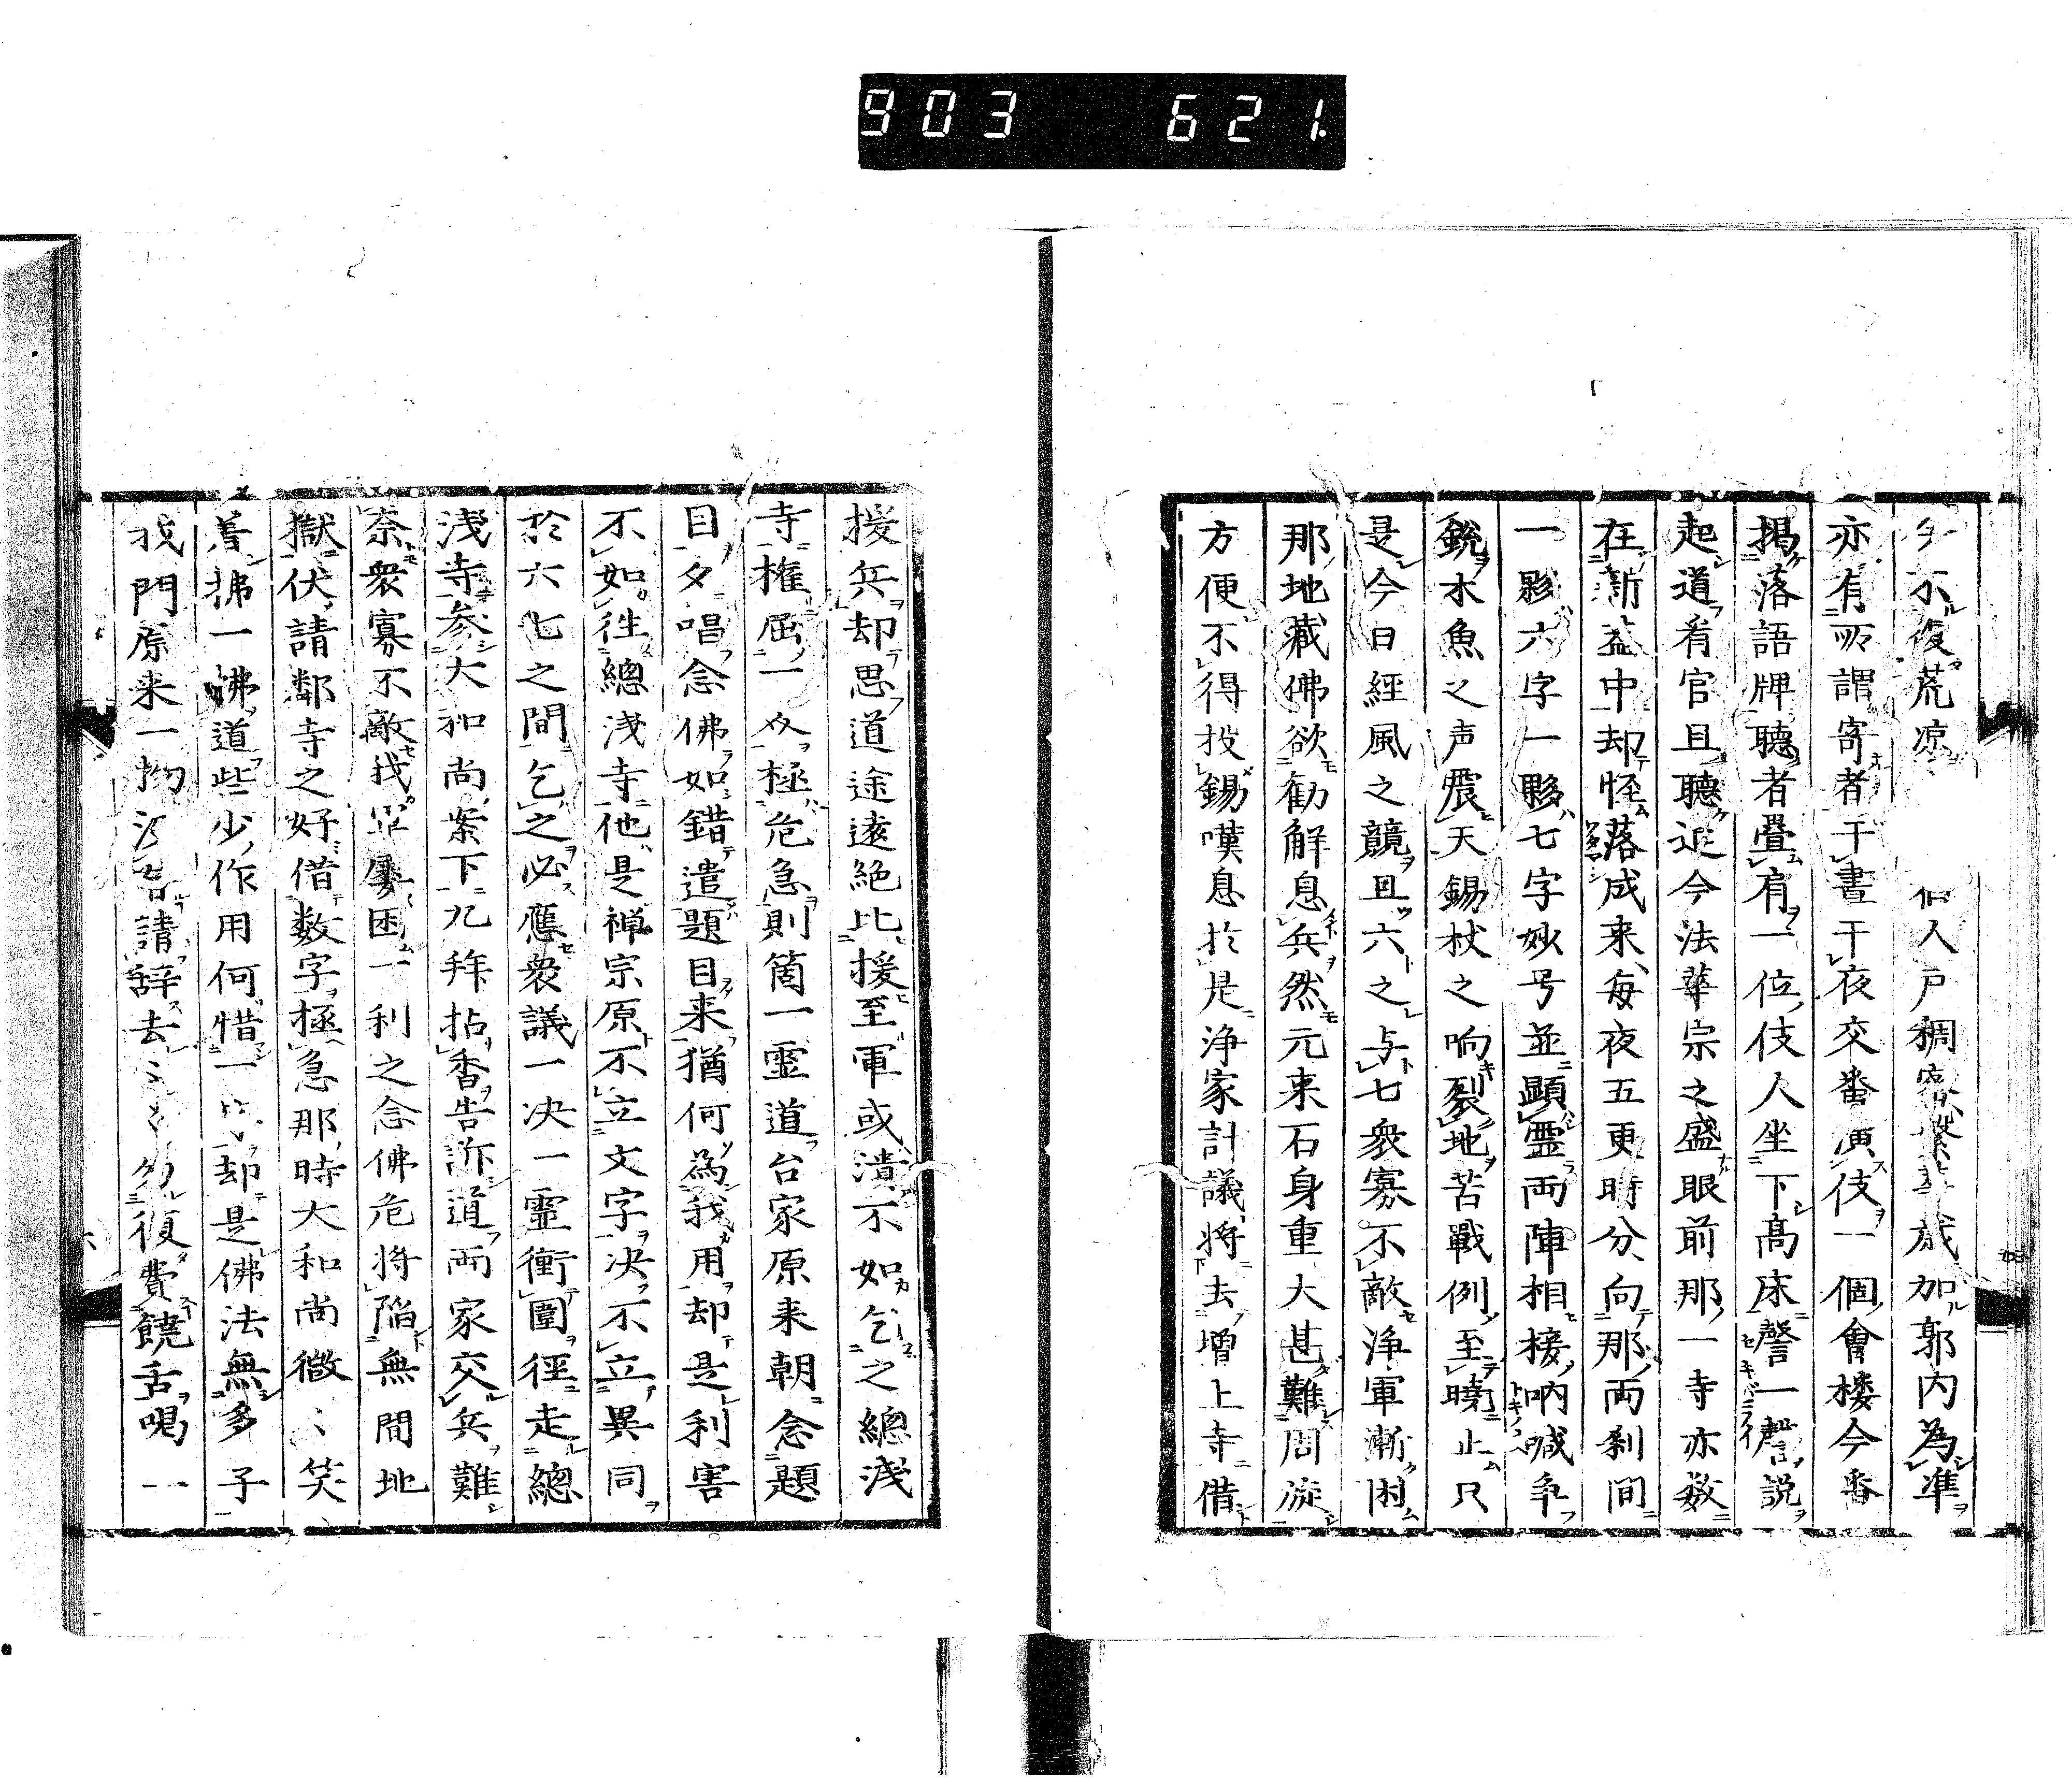 903 621
不復荒凉 個人戸稠密繁華歳加郭内為準
亦有所謂寄者于晝于夜交番演伎一個會楼今番
掲落語牌聴者畳有一位伎人坐下高床謦一謦説
起道看官且聴近今法華宗之盛眼前那一寺亦数
在新益中却怪落成来毎夜五更時分向那両刹間
一夥六字一夥七字妙号並顕霊両陣相接吶喊争
鋭木魚之声震天錫杖之响裂地苦戰例至曉止只
是今日經風之競且六之与七衆寡不敵浄軍漸困
那地藏佛欲勧解息兵然元来石身重大甚難周旋
方便不得投錫嘆息於是浄家計議将去増上寺借
援兵却思道途遠絶比援至軍或潰不如乞之總浅
寺権屈一各極危急則箇一霊道台家原来朝念題
目夕唱念佛如錯遣題目来猶何為我用却是利害
不如徃總浅寺他是禅宗原不立文字决不立異同
於六七之間乞之必應衆議一决一霊衝圍徑走總
浅寺参大和尚案下九拜拈香告訴道両家交兵難
奈衆寡不敵我軍屡困一利之念佛危将陥無間地
獄伏請鄰寺之好借数字極急那時大和尚微〻笑
着拂一拂道些少作用何惜一 却是佛法無多子
我門原来一物 請辞去〻 勿復費饒舌喝一